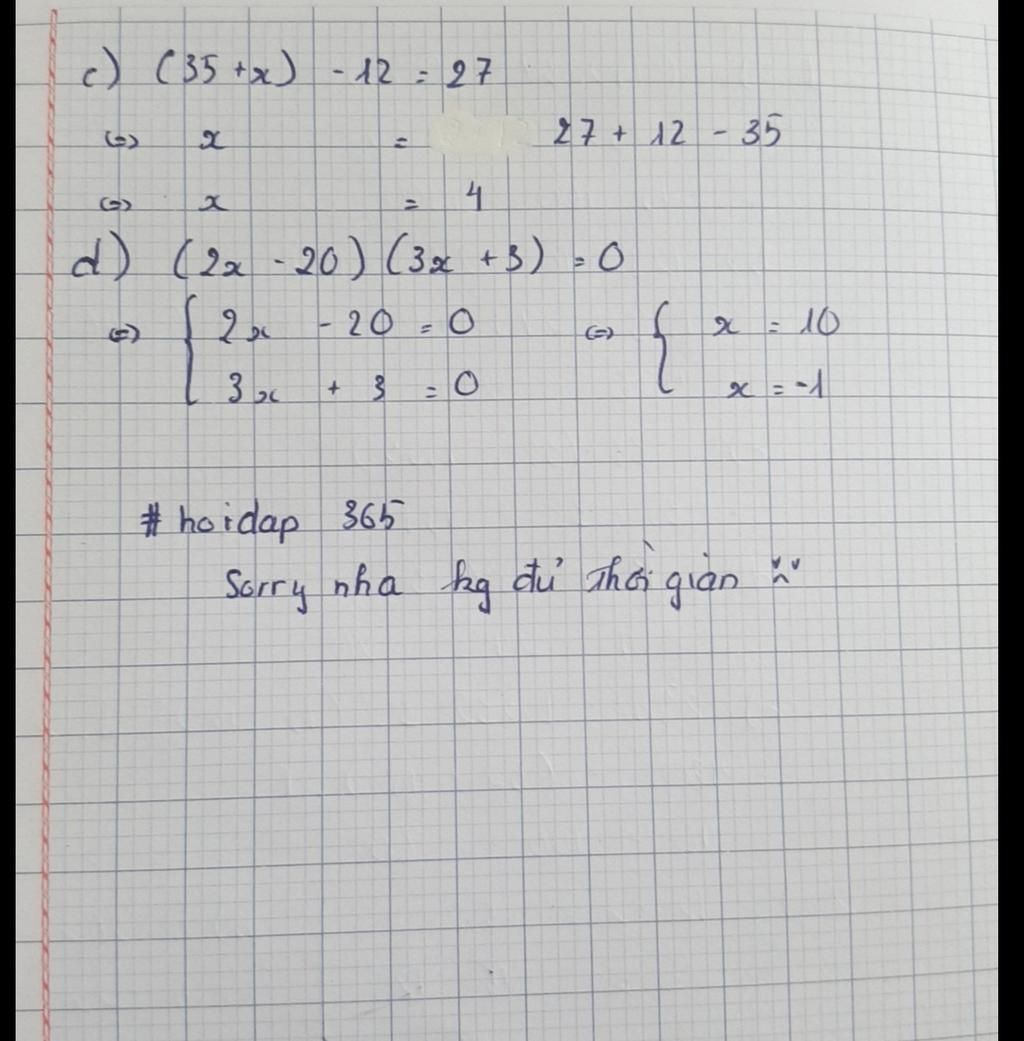 c) (35 + x) - 12 = 27
<=> x = 27 + 12 - 35
<=> x = 4
d) (2x - 20) (3x + 3) = 0
<=> { 2x - 20 = 0 <=> { x = 10
3x + 3 = 0 x = -1
# hoidap 365
Sorry nha kg đủ thời gian